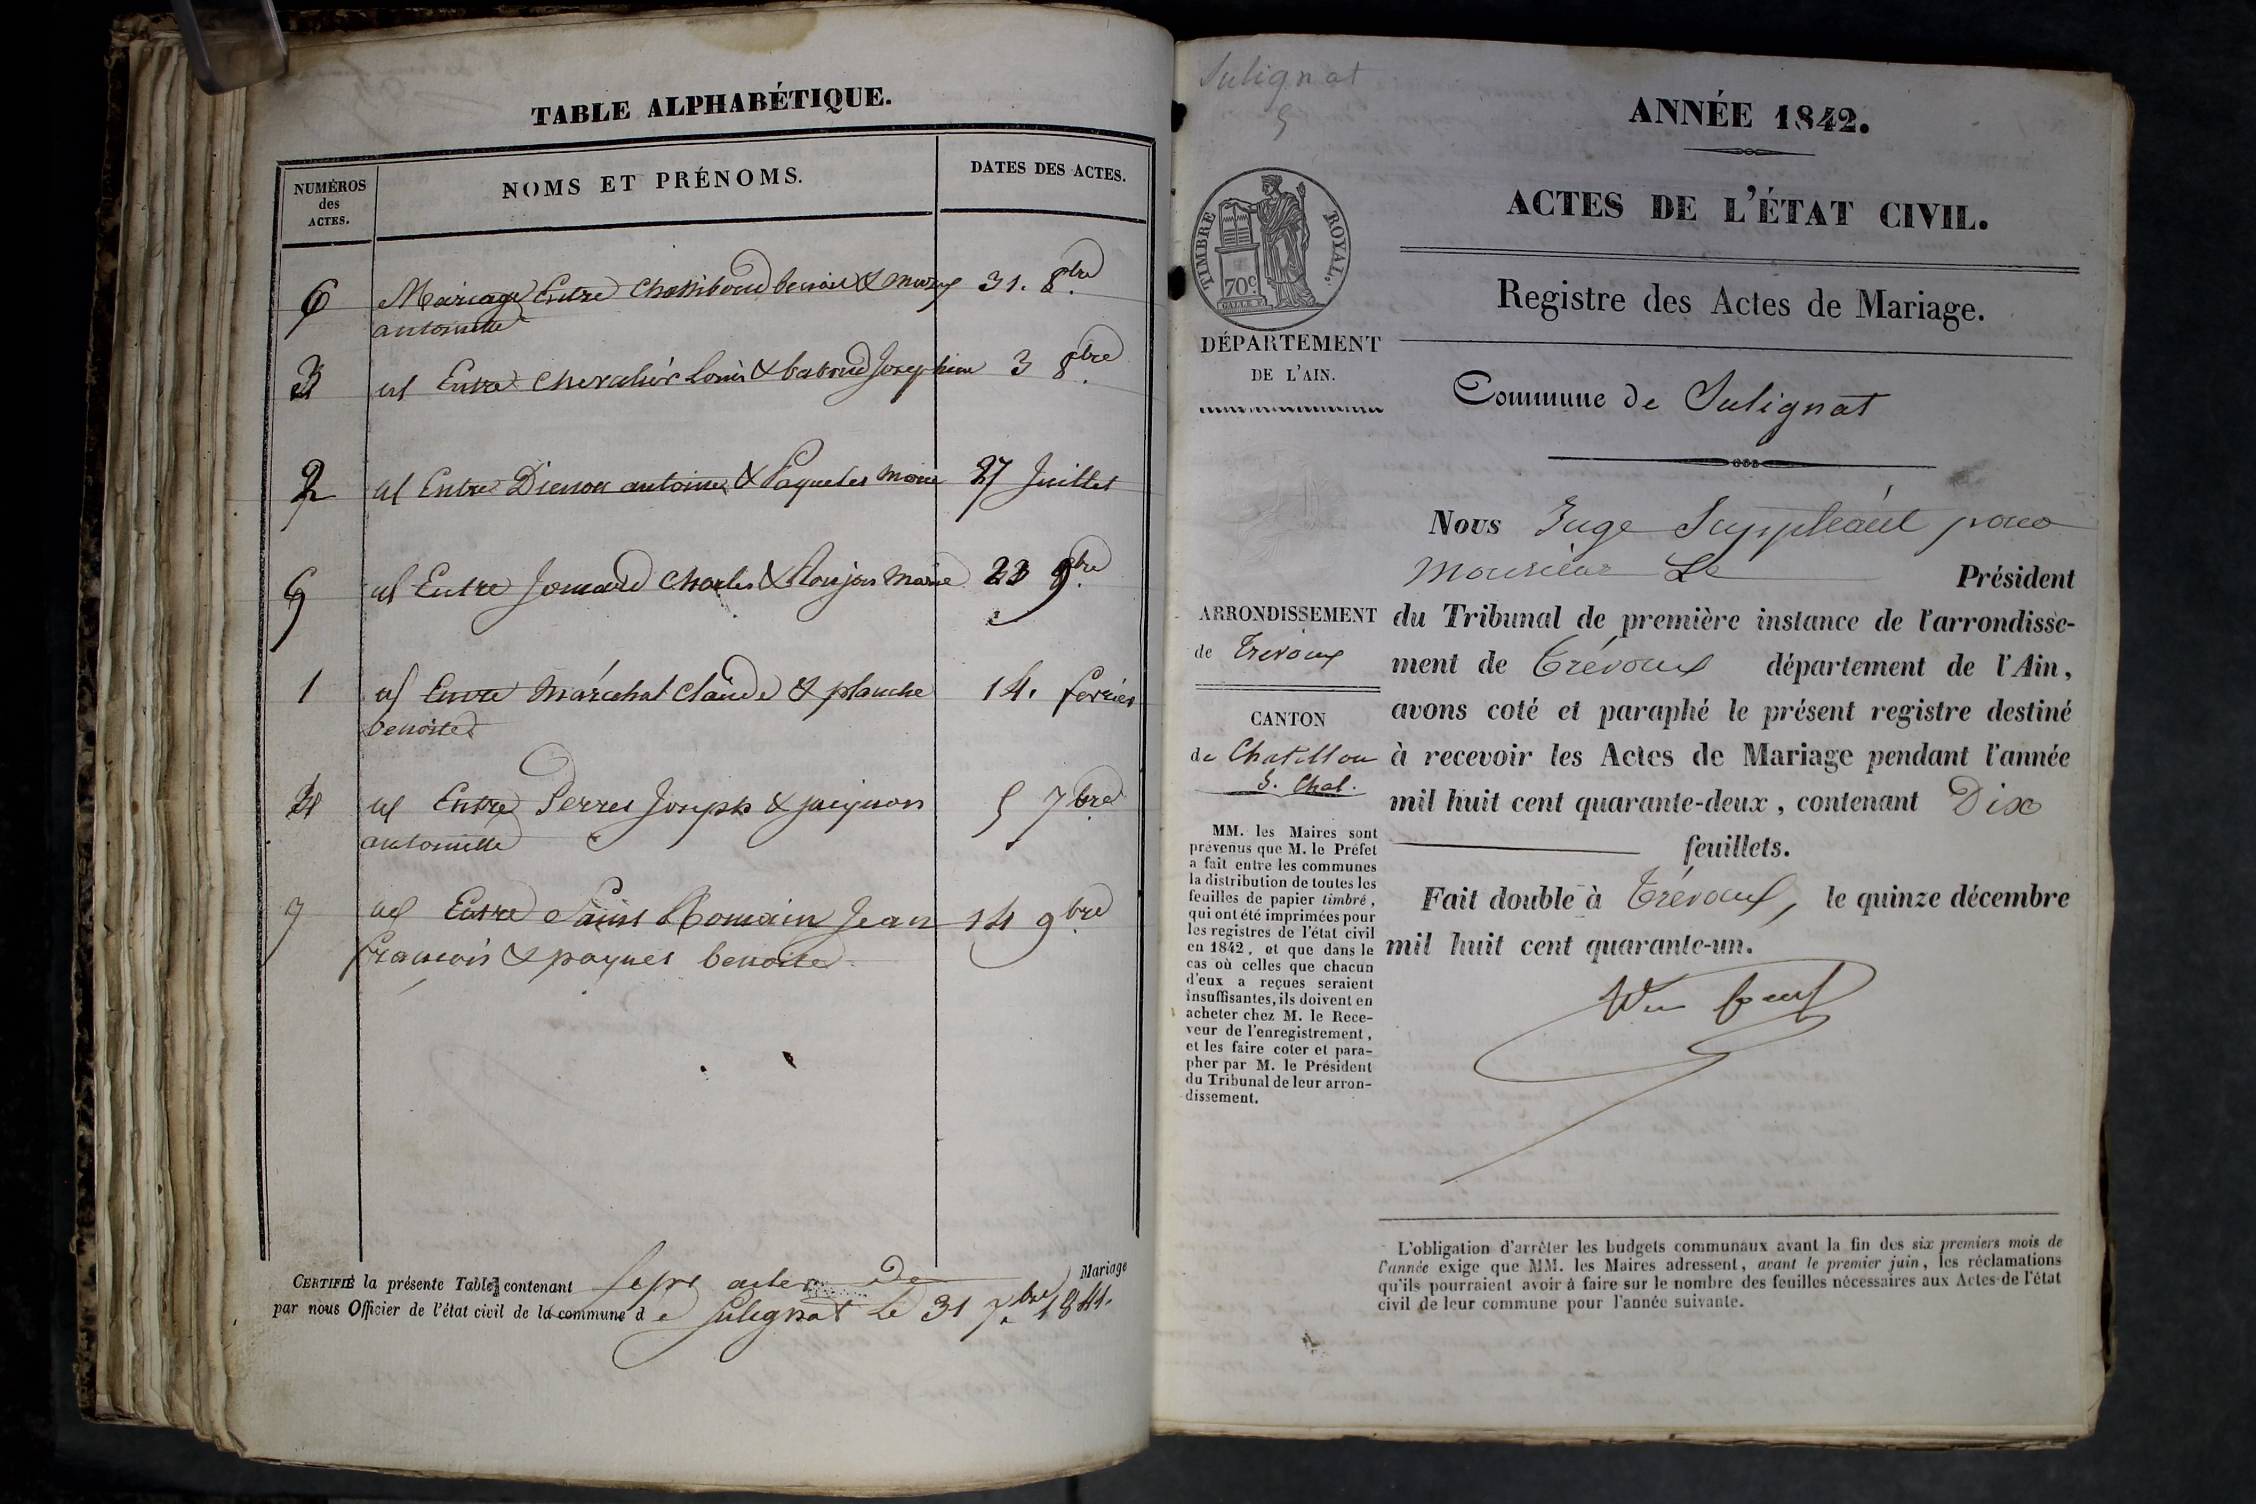 TABLE ALPHABÉTIQUE.
NUMÉROS
des
ACTES.
NOMS ET PRÉNOMS.
DATES DES ACTES.
6 Mariage Entre Chambaud benoit & 31. 8bre
antoinette
3 id Entre Chevalier Louis & baboud Josephine 3 8bre
2 id Entre Dienon antoine & Paquelet Marie 27 Juillet
id Entre Jomard Charles & Roujon Marie 23 9bre
1 id Entre Maréchal Claude & planche 14. fevrier
benoite
4 id Entre Perret Joseph & jacquon 5 7bre
antoinette
7 id Entre Saint Romain Jean 14 9bre
francois & paquet benoite
CERTIFIÉ la présente Table contenant Sept actes De Mariage
par nous Officier de l'état civil de la commune d e Sulignat Le 31 Xbre 1841.
Sulignat
5
ANNÉE 1842.
ACTES DE L'ÉTAT CIVIL.
TIMBRE ROYAL.
70c
Registre des Actes de Mariage.
DÉPARTEMENT
DE L'AIN.
Commune de Sulignat
Nous Juge Suppléant pour
Monsieur Le Président
du Tribunal de première instance de l'arrondisse-
ment de Trévoux département de l'Ain,
avons coté et paraphé le présent registre destiné
à recevoir les Actes de Mariage pendant l'année
mil huit cent quarante-deux, contenant Dix
feuillets.
Fait double à Trévoux, le quinze décembre
mil huit cent quarante-un.
ARRONDISSEMENT
de Trevoux
CANTON
de Chatillon
S. Chal.
MM. les Maires sont
prévenus que M. le Préfet
a fait entre les communes
la distribution de toutes les
feuilles de papier timbré,
qui ont été imprimées pour
les registres de l'état civil
en 1842, et que dans le
cas où celles que chacun
d'eux a reçues seraient
insuffisantes, ils doivent en
acheter chez M. le Rece-
veur de l'enregistrement,
et les faire coter et para-
pher par M. le Président
du Tribunal de leur arron-
dissement.
L'obligation d'arrêter les budgets communaux avant la fin des six premiers mois de
l'année exige que MM. les Maires adressent, avant le premier juin, les réclamations
qu'ils pourraient avoir à faire sur le nombre des feuilles nécessaires aux Actes de l'état
civil de leur commune pour l'année suivante.